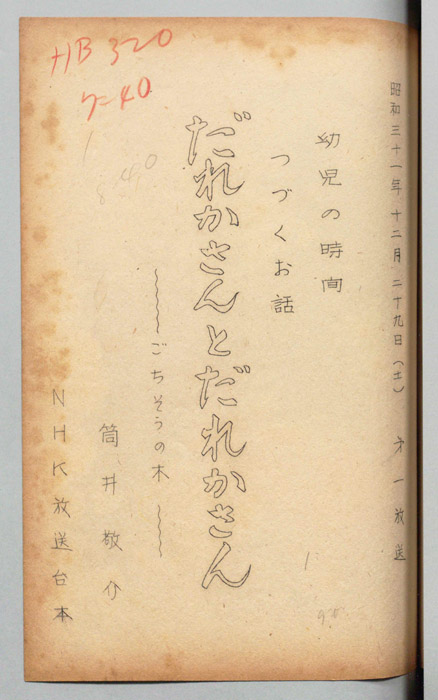 昭和三十一年十二月二十九日(土) 才一放送
幼児の時間
つづくお話
だれかさんとだれかさん
~~~~ ごちそうの木 ~~~~
筒井敬介
NHK放送台本
HB 320
ケ-40